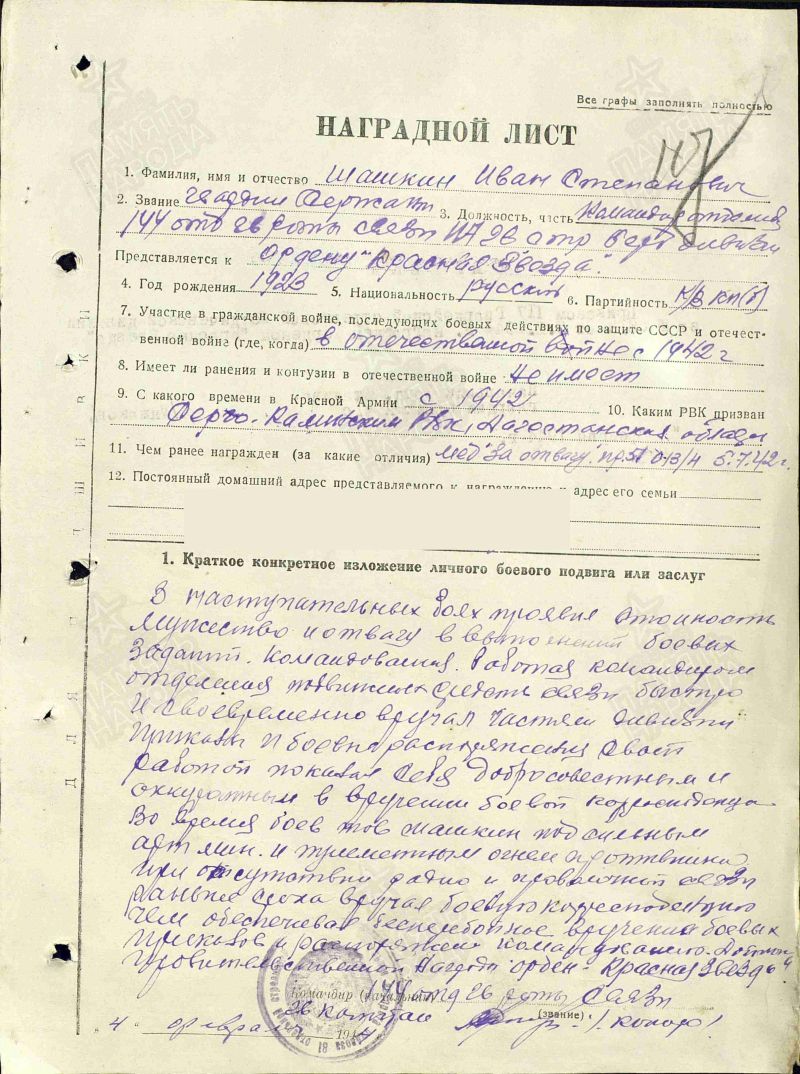 Все графы заполнять полностью
НАГРАДНОЙ ЛИСТ
1. Фамилия, имя и отчество Шашкин Иван Степанович
2. Звание гвардии Сержант 3. Должность, часть Командир отделения
144 роты связи
Представляется к Ордену "Красная Звезда".
4. Год рождения 1923 5. Национальность русский 6. Партийность к/в кп(б)
7. Участие в гражданской войне, последующих боевых действиях по защите СССР и отечест-
венной войне (где, когда) в отечественной войне с 1942 г
8. Имеет ли ранения и контузии в отечественной войне не имеет
9. С какого времени в Красной Армии с 1942 10. Каким РВК призван
Серго-Калинским Рвк, Дагестанская область
11. Чем ранее награжден (за какие отличия) мед "За отвагу" пр. 51 5.7.42 г.
12. Постоянный домашний адрес представляемого к награждению и адрес его семьи
1. Краткое конкретное изложение личного боевого подвига или заслуг
В наступательных боях проявил стойкость
мужество и отвагу в выполнении боевых
заданий. Командования. Работая командиром
отделения подвижных средств связи быстро
и своевременно вручал частям дивизии
приказы и боевые распоряжения Своей
работой показал себя добросовестным и
аккуратным в вручении боевой корреспонденции
Во время боев тов Шашкин под сильным
арт мин. и пулеметным огнем противника
при отсутствии радио и проволочной связи
раньше срока вручал боевую корреспонденцию
чем обеспечивал бесперебойное вручение боевых
приказов и распоряжений командования. Достоин
правительственной награды орден "Красная Звезда"
Командир (начальник) 144 роты связи
капитан (звание)
"4" февраля 194
ДЛЯ ПОДШИВКИ
ПАМЯТЬ НАРОДА